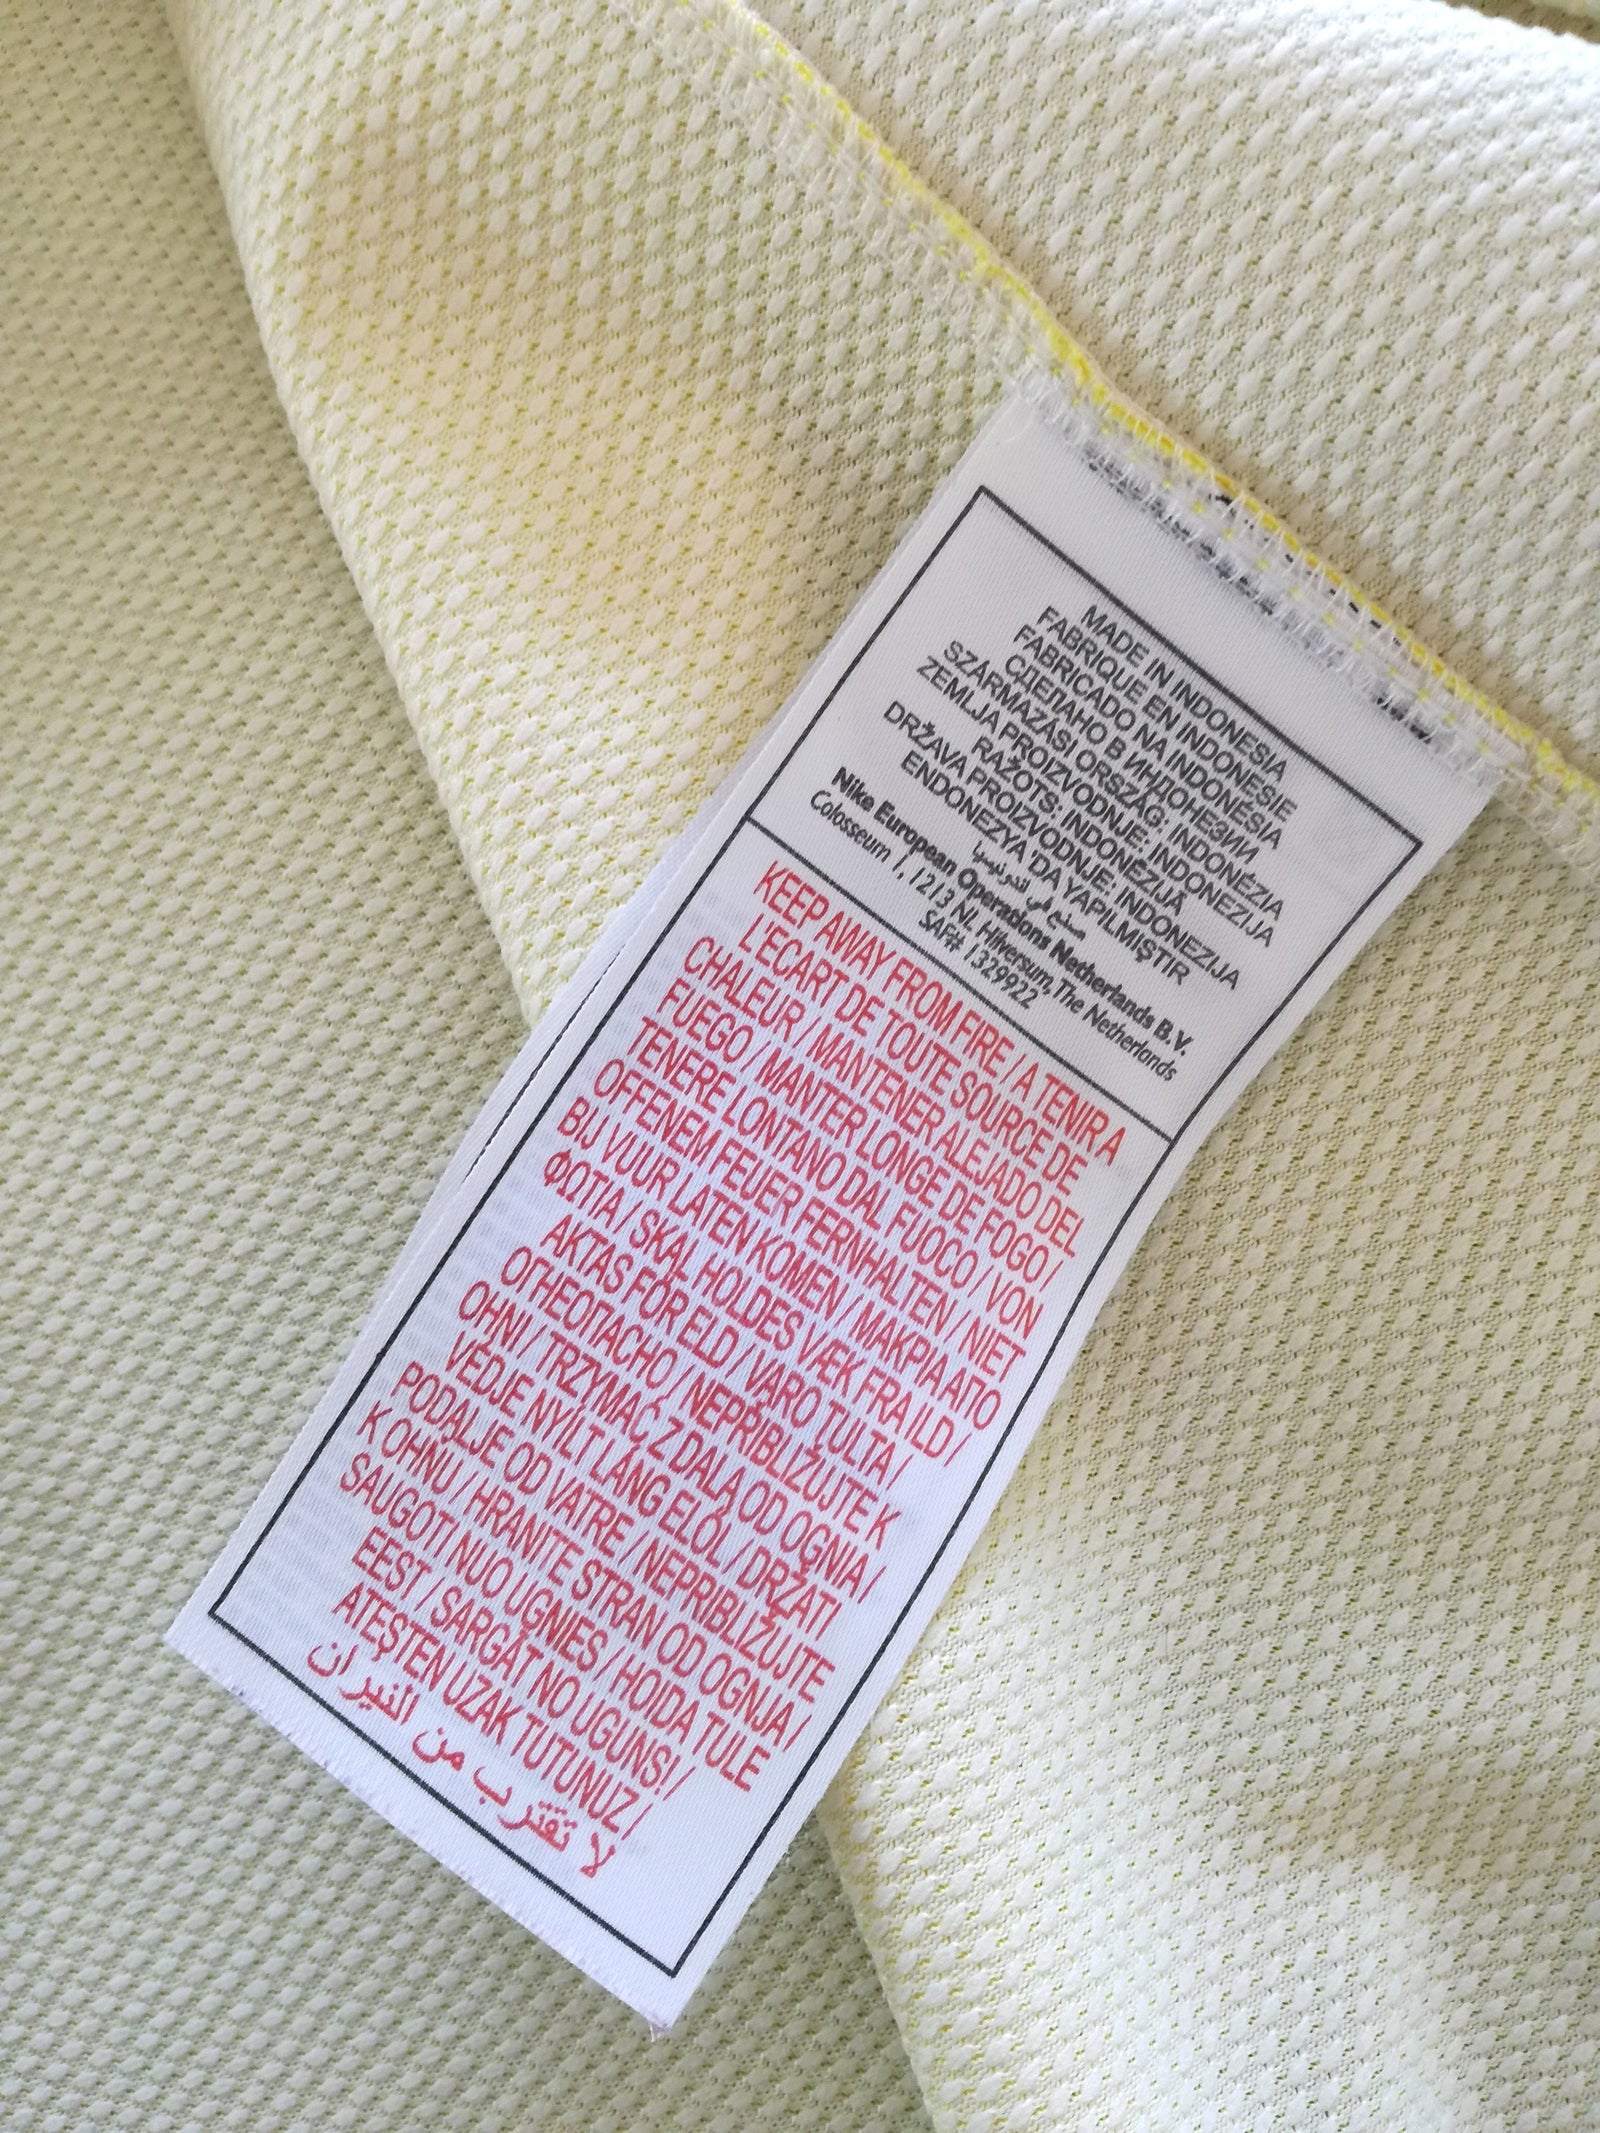 MADE IN INDONESIA
FABRIQUE EN INDONESIE
FABRICADO NA INDONÉSIA
СДЕЛАНО В ИНДОНЕЗИИ
SZÁRMAZÁSI ORSZÁG: INDONÉZIA
ZEMLJA PROIZVODNJE: INDONEZIJA
RAŽOTS: INDONĒZIJĀ
DRŽAVA PROIZVODNJE: INDONEZIJA
ENDONEZYA 'DA YAPILMIŞTIR
صنع في اندونيسيا
Nike European Operations Netherlands B.V.
Colosseum 1, 1213 NL Hilversum, The Netherlands
SAF# 1329922
KEEP AWAY FROM FIRE / A TENIR A
L'ECART DE TOUTE SOURCE DE
CHALEUR / MANTENER ALEJADO DEL
FUEGO / MANTER LONGE DE FOGO /
TENERE LONTANO DAL FUOCO / VON
OFFENEM FEUER FERNHALTEN / NIET
BIJ VUUR LATEN KOMEN / ΜΑΚΡΙΑ ΑΠΟ
ΦΩΤΙΑ / SKAL HOLDES VÆK FRA ILD /
AKTAS FÖR ELD / VARO TULTA /
ОГНЕОПАСНО / NEPŘIBLIŽUJTE K
OHNI / TRZYMAĆ Z DALA OD OGNIA /
VÉDJE NYÍLT LÁNG ELŐL / DRŽATI
PODALJE OD VATRE / NEPRIBLIŽUJTE
K OHŇU / HRANITE STRAN OD OGNJA /
SAUGOTI NUO UGNIES / HOIDA TULE
EEST / SARGĀT NO UGUNS! /
ATEŞTEN UZAK TUTUNUZ /
لا تقترب من النيران